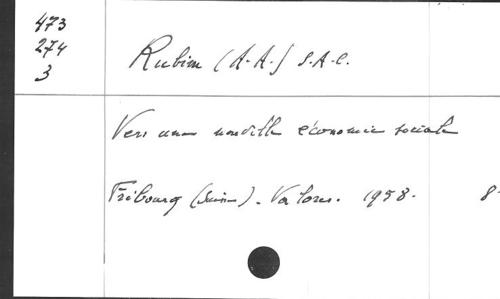 473
274
3
Rubin (A.A.) S.A.C.
Vers une nouvelle économie sociale
Fribourg (Suisse). Valores. 1958. 8